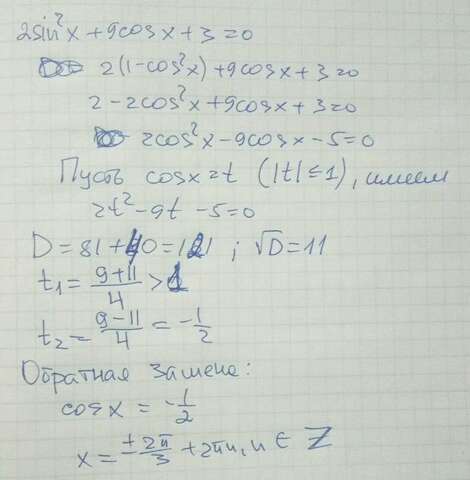 2sin²x + 9cosx + 3 = 0
2(1-cos²x) + 9cosx + 3 = 0
2 - 2cos²x + 9cosx + 3 = 0
2cos²x - 9cosx - 5 = 0
Пусть cosx = t (|t| ≤ 1), имеем
2t² - 9t - 5 = 0
D = 81 + 40 = 121 ; √D = 11
t₁ = (9+11)/4 > 1
t₂ = (9-11)/4 = -1/2
Обратная замена:
cosx = -1/2
x = ± 2π/3 + 2πn, n ∈ Z